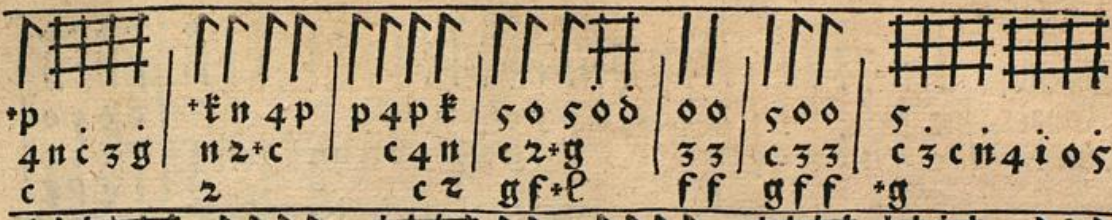 *p *k n 4 p p 4 p k 5 o 5 ȯ ḋ o o 5 o o 5
4 n ċ 3 ġ n 2 *c c 4 n c 2 *g 3 3 c 3 3 c 3̇ c ṅ 4 i o 5̇
c 2 c 2 g f *l f f g f f *g